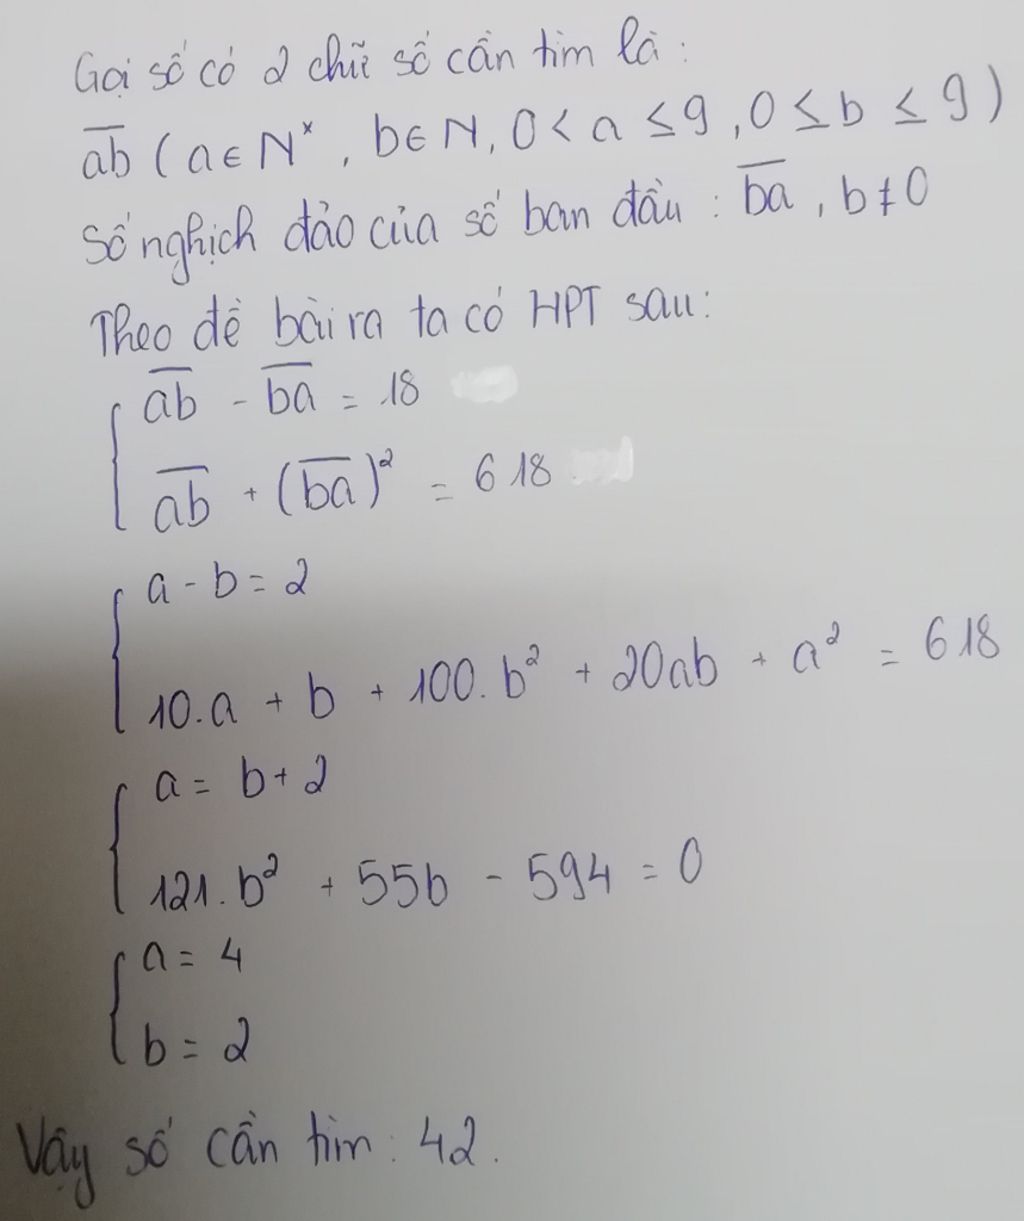 Gọi số có 2 chữ số cần tìm là:
ab̅ (a ∈ N*, b ∈ N, 0 < a ≤ 9, 0 ≤ b ≤ 9)
Số nghịch đảo của số ban đầu: b̅a̅, b ≠ 0
Theo đề bài ra ta có HPT sau:
a̅b̅ - b̅a̅ = 18
a̅b̅ + (b̅a̅)² = 618
a - b = 2
10.a + b + 100.b² + 20ab + a² = 618
a = b + 2
121.b² + 55b - 594 = 0
a = 4
b = 2
Vậy số cần tìm: 42.